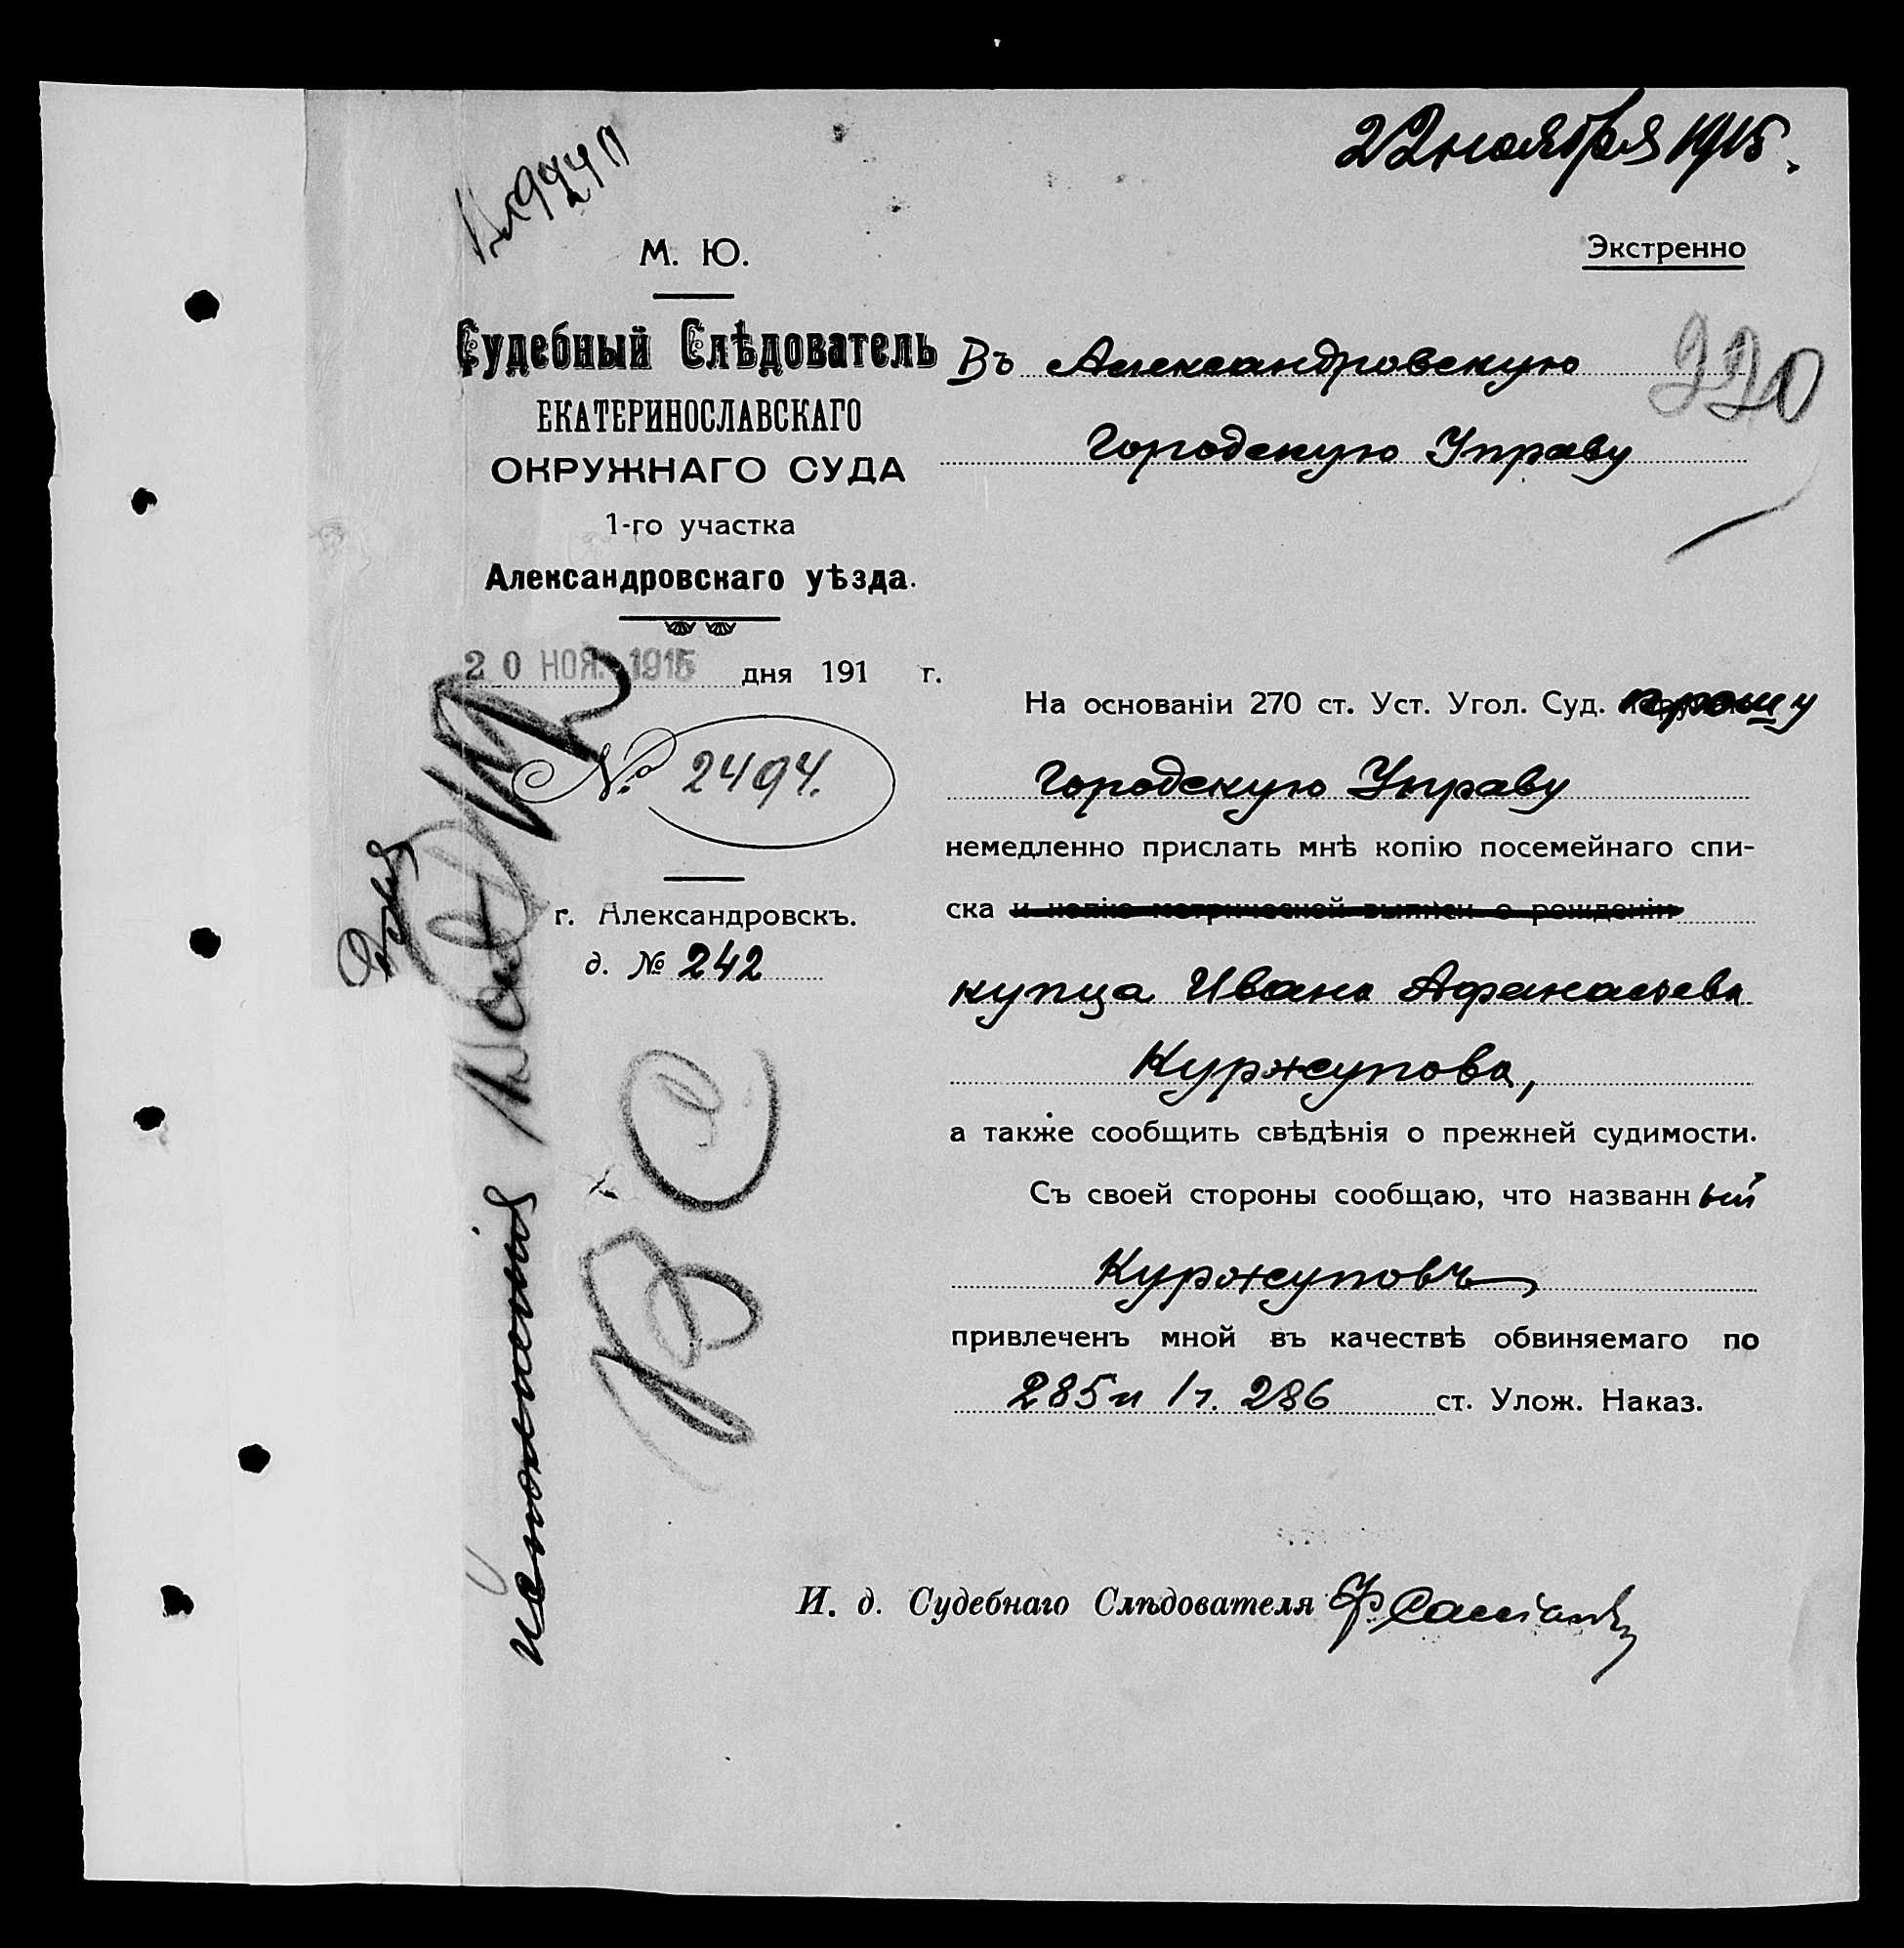 22 ноября 1915.
№ 9240
М. Ю.
Экстренно
Судебный Слѣдователь
ЕКАТЕРИНОСЛАВСКАГО
ОКРУЖНАГО СУДА
1-го участка
Александровскаго уѣзда.
20 НОЯ. 1915 дня 191 г.
№ 2494.
г. Александровскъ.
д. № 242
Въ Александровскую
Городскую Управу
220
На основаніи 270 ст. Уст. Угол. Суд. прошу
Городскую Управу
немедленно прислать мнѣ копію посемейнаго спи-
ска и копію метрической выписи о рожденіи
купца Ивана Афанасьева
Куржупова,
а также сообщить свѣдѣнія о прежней судимости.
Съ своей стороны сообщаю, что названный
Куржуповъ
привлеченъ мной въ качествѣ обвиняемаго по
285 и 1 ч. 286 ст. Улож. Наказ.
И. д. Судебнаго Слѣдователя
Для
исполненія